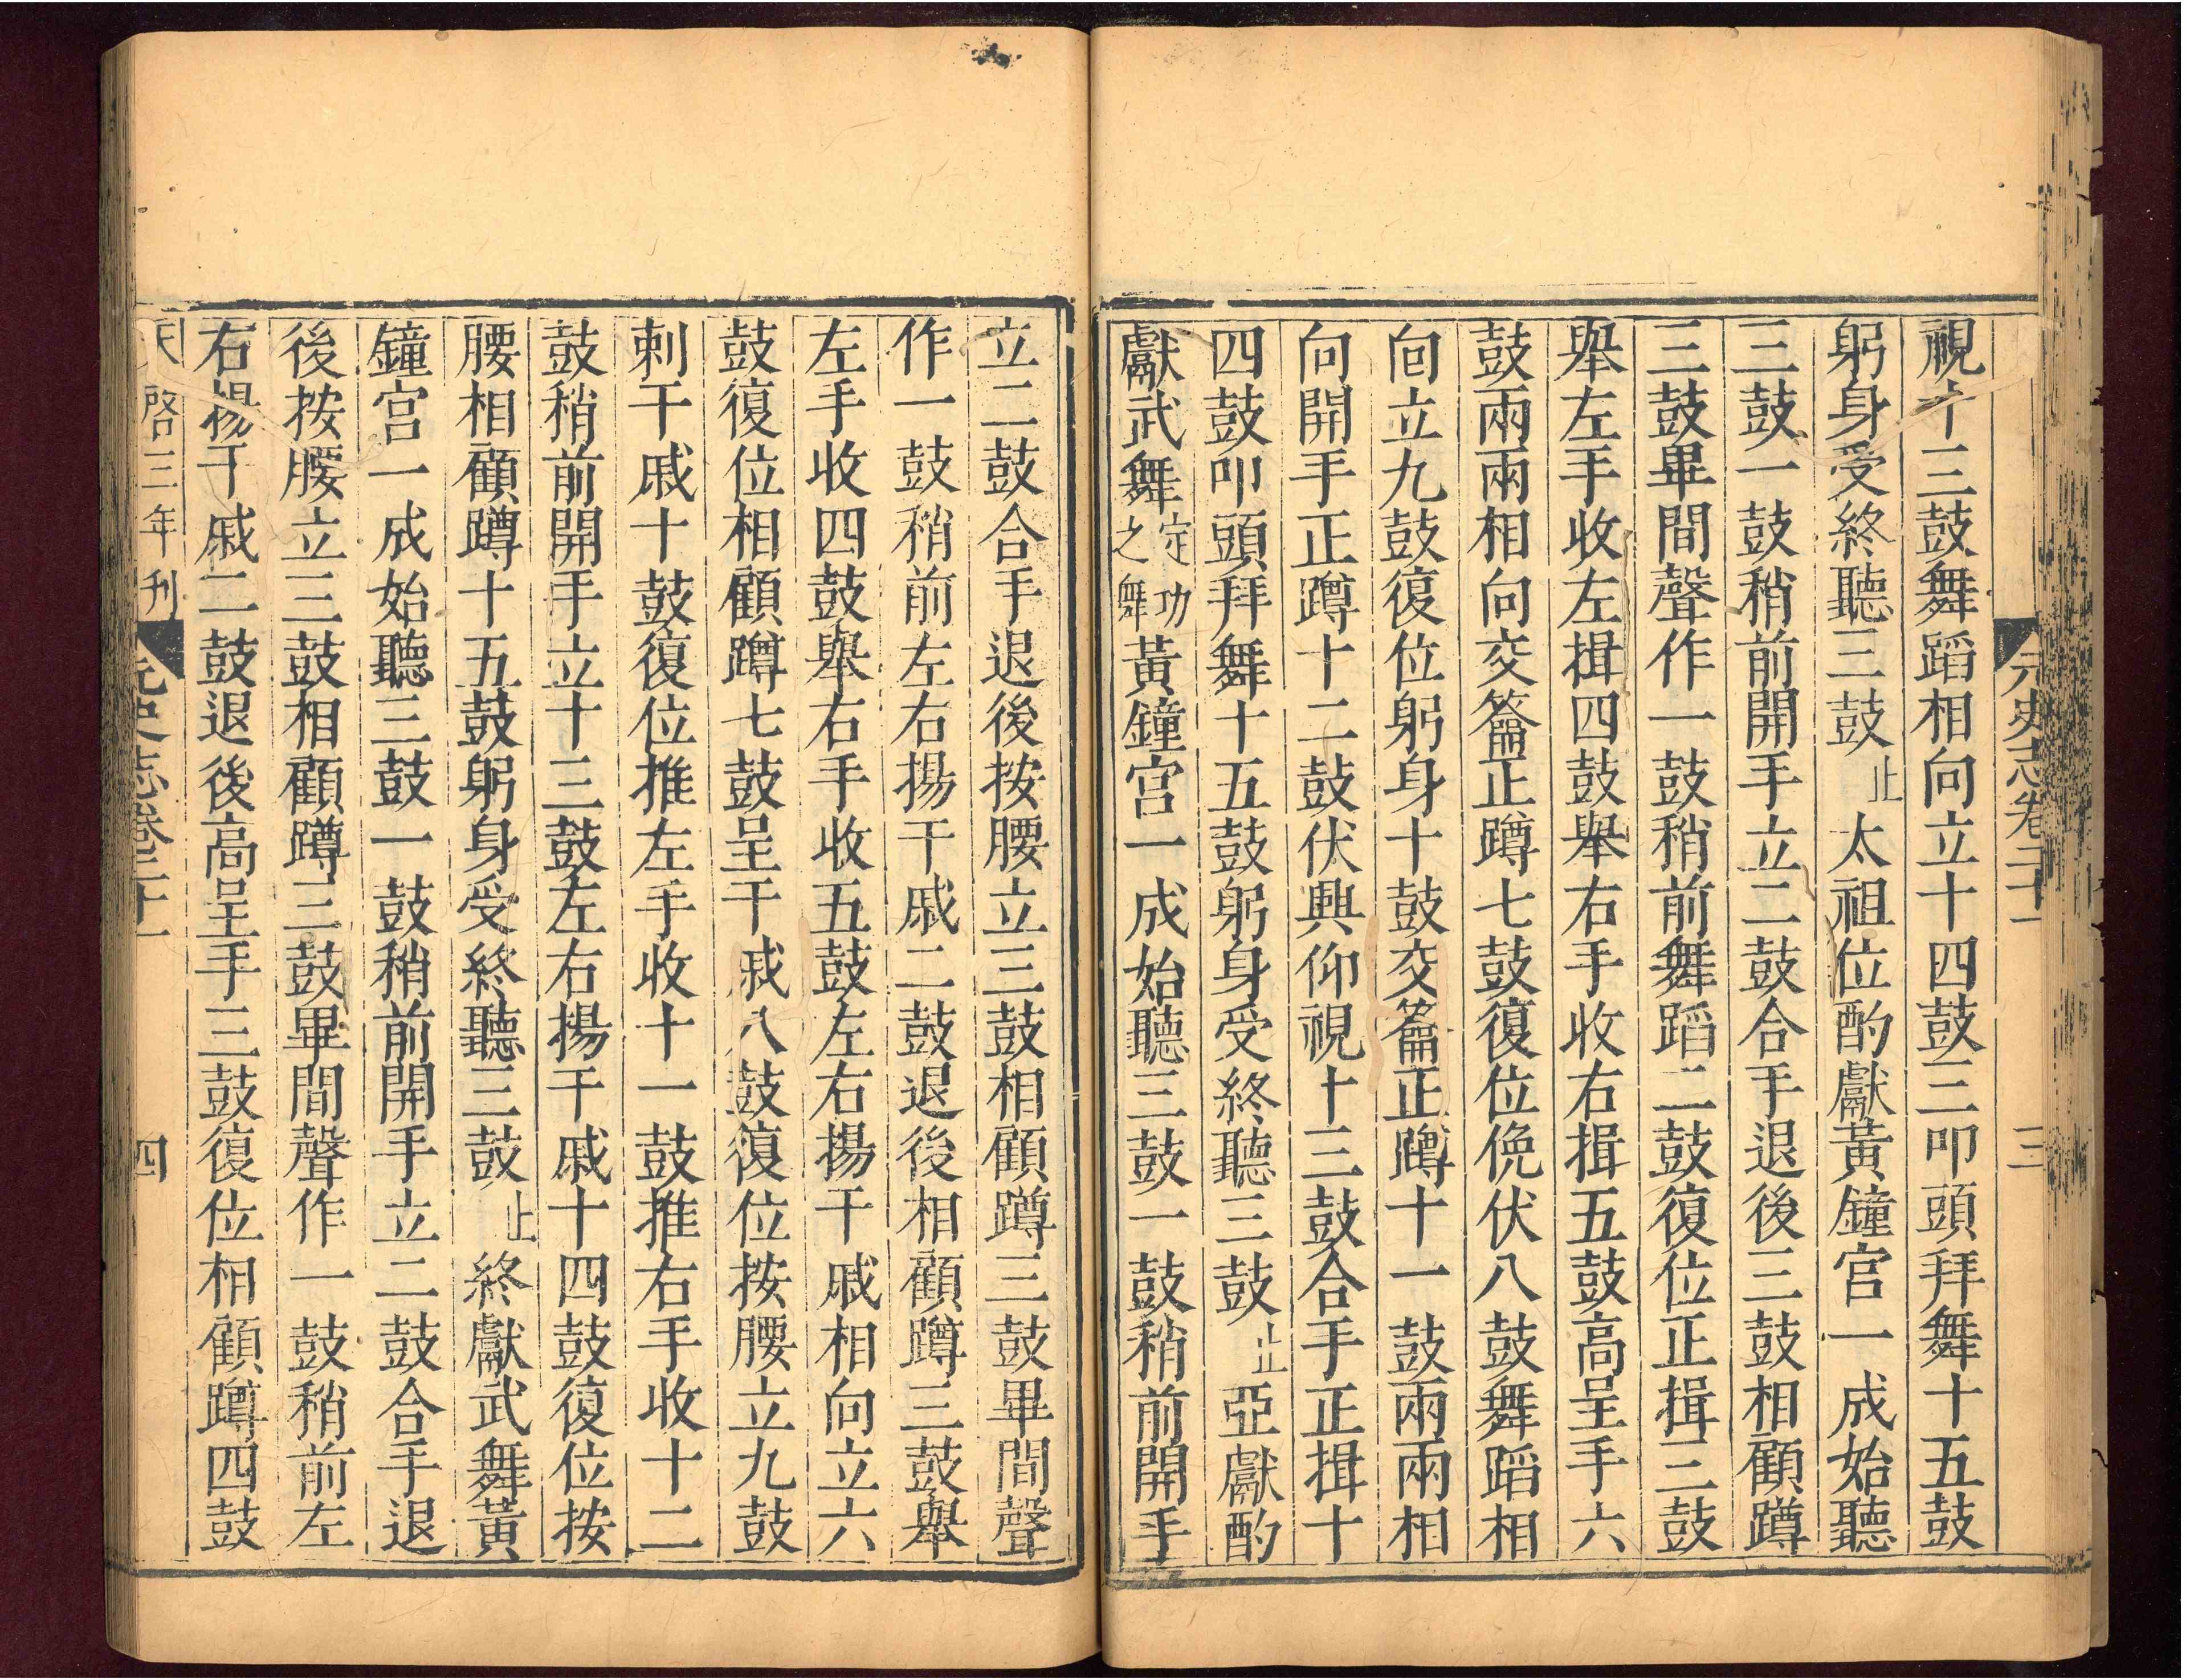 元史志卷二十一 三
視十三鼓舞蹈相向立十四鼓三叩頭拜舞十五鼓
躬身受終聽三鼓止太祖位酌獻黃鐘宮一成始聽
三鼓一鼓稍前開手立二鼓合手退後三鼓相顧蹲
三鼓畢間聲作一鼓稍前舞蹈二鼓復位正揖三鼓
舉左手收左揖四鼓舉右手收右揖五鼓高呈手六
鼓兩兩相向交籥正蹲七鼓復位俛伏八鼓舞蹈相
向立九鼓復位躬身十鼓交籥正蹲十一鼓兩兩相
向開手正蹲十二鼓伏興仰視十三鼓合手正揖十
四鼓叩頭拜舞十五鼓躬身受終聽三鼓止亞獻酌
獻武舞定功之舞黃鐘宮一成始聽三鼓一鼓稍前開手
立二鼓合手退後按腰立三鼓相顧蹲三鼓畢間聲
作一鼓稍前左右揚干戚二鼓退後相顧蹲三鼓舉
左手收四鼓舉右手收五鼓左右揚干戚相向立六
鼓復位相顧蹲七鼓呈干戚八鼓復位按腰立九鼓
刺干戚十鼓復位推左手收十一鼓推右手收十二
鼓稍前開手立十三鼓左右揚干戚十四鼓復位按
腰相顧蹲十五鼓躬身受終聽三鼓止終獻武舞黃
鐘宮一成始聽三鼓一鼓稍前開手立二鼓合手退
後按腰立三鼓相顧蹲三鼓畢間聲作一鼓稍前左
右揚干戚二鼓退後高呈手三鼓復位相顧蹲四鼓
天啓三年刊 元史志卷二十一 四